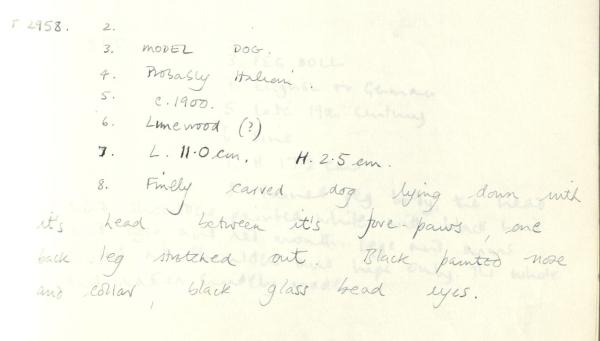 T 2958. 2.
3. MODEL DOG.
4. Probably Italian.
5. c.1900.
6. Limewood (?)
7. L. 11.0 cm. H. 2.5 cm.
8. Finely carved dog lying down with
it's head between it's fore-paws, one
back leg stretched out. Black painted nose
and collar, black glass bead eyes.